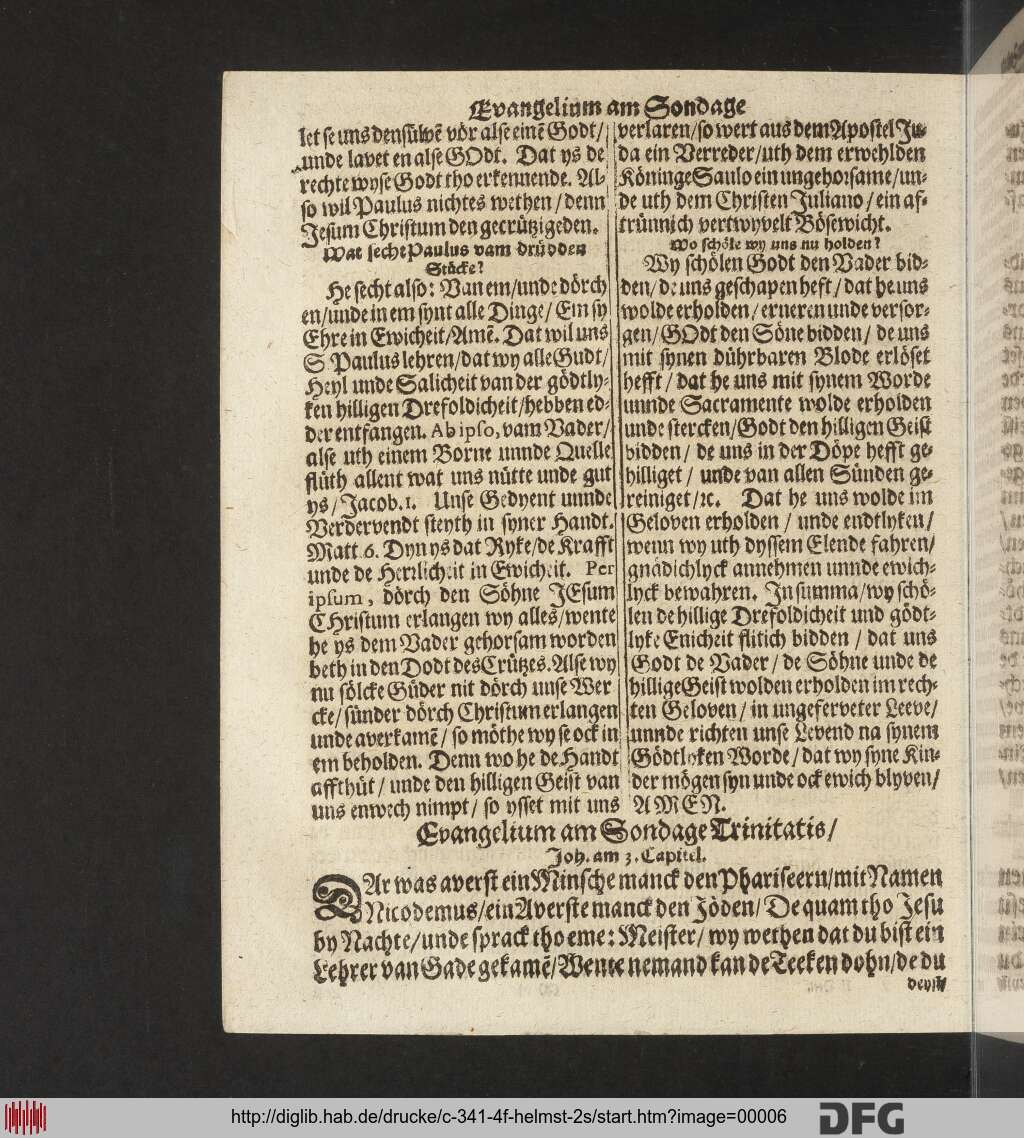 Evangelium am Sondage
let se uns densülvē vör alse einē Godt/
unde lavet en alse GOdt. Dat ys de
rechte wyse Godt tho erkennende. Al-
so wil Paulus nichtes wethen/denn
Jesum Christum den gecrützigeden.
Wat secht Paulus vam drüdden
Stücke?
He secht also: Van em/unde dörch
en/unde in em synt alle Dinge/Em sy
Ehre in Ewicheit/Amē. Dat wil uns
S Paulus lehren/dat wy alle Gudt/
Heyl unde Salicheit van der gödtly-
ken hilligen Drefoldicheit/hebben ed-
der entfangen. Ab ipso, vam Vader/
alse uth einem Borne unnde Quelle
flüth allent wat uns nütte unde gut
ys/Jacob.1. Unse Gedyent unnde
Verdervendt steyth in syner Handt.
Matt 6. Dyn ys dat Ryke/de Krafft
unde de Herrlicheit in Ewicheit. Per
ipsum, dörch den Söhne JEsum
CHristum erlangen wy alles/wente
he ys dem Vader gehorsam worden
beth in den Dodt des Crützes. Alse wy
nu sölcke Güder nit dörch unse Wer
cke/sünder dörch Christum erlangen
unde averkamē/so möthe wy se ock in
em beholden. Denn wo he de Handt
affthüt/unde den hilligen Geist van
uns enwech nimpt/so ysset mit uns
verlaren/so wert aus dem Apostel Ju-
da ein Verreder/uth dem erwehlden
Köninge Saulo ein ungehorsame/un-
de uth dem Christen Juliano/ein af-
trünnich vertwyvelt Bösewicht.
Wo schöle wy uns nu holden?
Wy schölen Godt den Vader bid-
den/de uns geschapen heft/dat he uns
wolde erholden/erneren unde versor-
gen/GOdt den Söne bidden/de uns
mit synen dührbaren Blode erlöset
hefft/dat he uns mit synem Worde
unnde Sacramente wolde erholden
unde stercken/Godt den hilligen Geist
bidden/de uns in der Döpe hefft ge-
hilliget/unde van allen Sünden ge-
reiniget/ꝛc. Dat he uns wolde im
Geloven erholden/unde endtlyken/
wenn wy uth dyssem Elende fahren/
gnadichlyck annehmen unnde ewich-
lyck bewahren. In summa/wy schö-
len de hillige Drefoldicheit und gödt-
lyke Enicheit flitich bidden/dat uns
Godt de Vader/de Söhne unde de
hillige Geist wolden erholden im rech-
ten Geloven/in ungeferveter Leeve/
unnde richten unse Levend na synem
Gödtlyken Worde/dat wy syne Kin-
der mögen syn unde ock ewich blyven/
AMEN.
Evangelium am Sondage Trinitatis/
Joh. am 3. Capitel.
DAr was averst ein Minsche manck den Phariseern/mit Namen
Nicodemus/ein Averste manck den Jöden/De quam tho Jesu
by Nachte/unde sprack tho eme: Meister/wy wethen dat du bist ein
Lehrer van Gade gekamē/Wente nemand kan de Teeken dohn/de du
http://diglib.hab.de/drucke/c-341-4f-helmst-2s/start.htm?image=00006
DFG